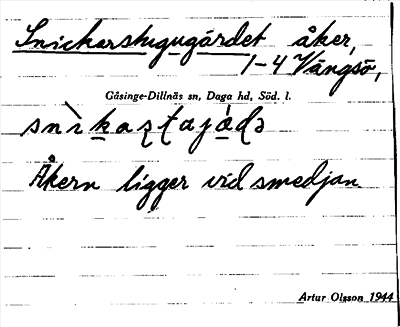 Snickarstugugärdet åker,
1-4 Vängsö,
Gåsinge-Dillnäs sn, Daga hd, Söd. l.
Åkern ligger vid smedjan
Artur Olsson 1944